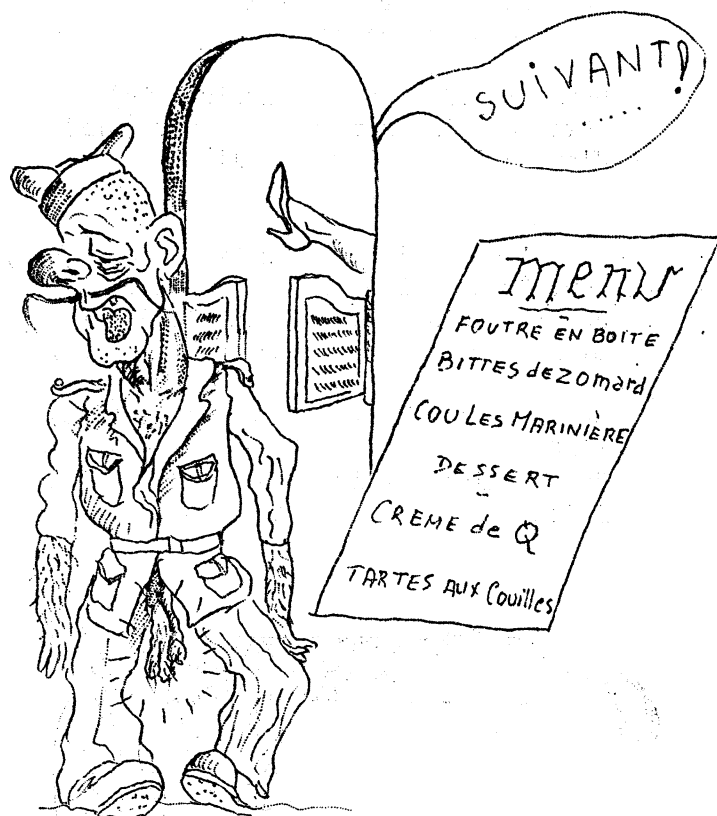 SUiVANT!
.....
menu
FOUTRE EN BOITE
BITTES de ZOmard
COULES MARINIÈRE
DESSERT
CREME de Q
TARTES AUX Couilles